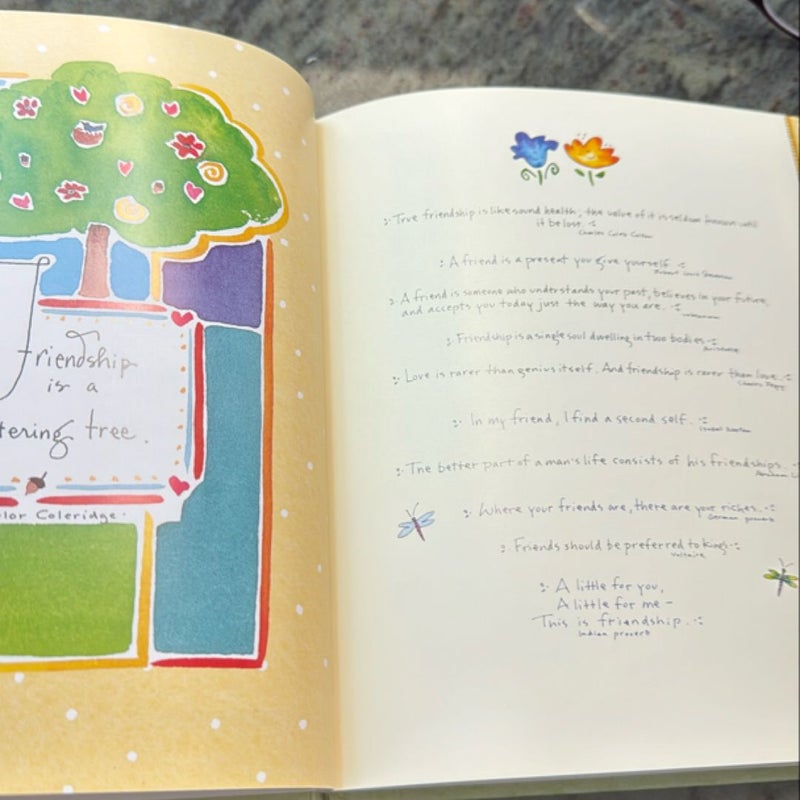 Friendship
is a
tering tree.
lor Coleridge.
True friendship is like sound health; the value of it is seldom known until
it be lost.
Charles Caleb Colton
A friend is a present you give yourself.
Robert Louis Stevenson
A friend is someone who understands your past, believes in your future,
and accepts you today just the way you are.
unknown
Friendship is a single soul dwelling in two bodies.
Aristotle
Love is rarer than genius itself. And friendship is rarer than love.
Charles
In my friend, I find a second self.
Isabel Norton
The better part of a man's life consists of his friendships.
Abraham Li
Where your friends are, there are your riches.
German proverb
Friends should be preferred to kings.
Voltaire
A little for you,
A little for me -
This is friendship.
Indian proverb